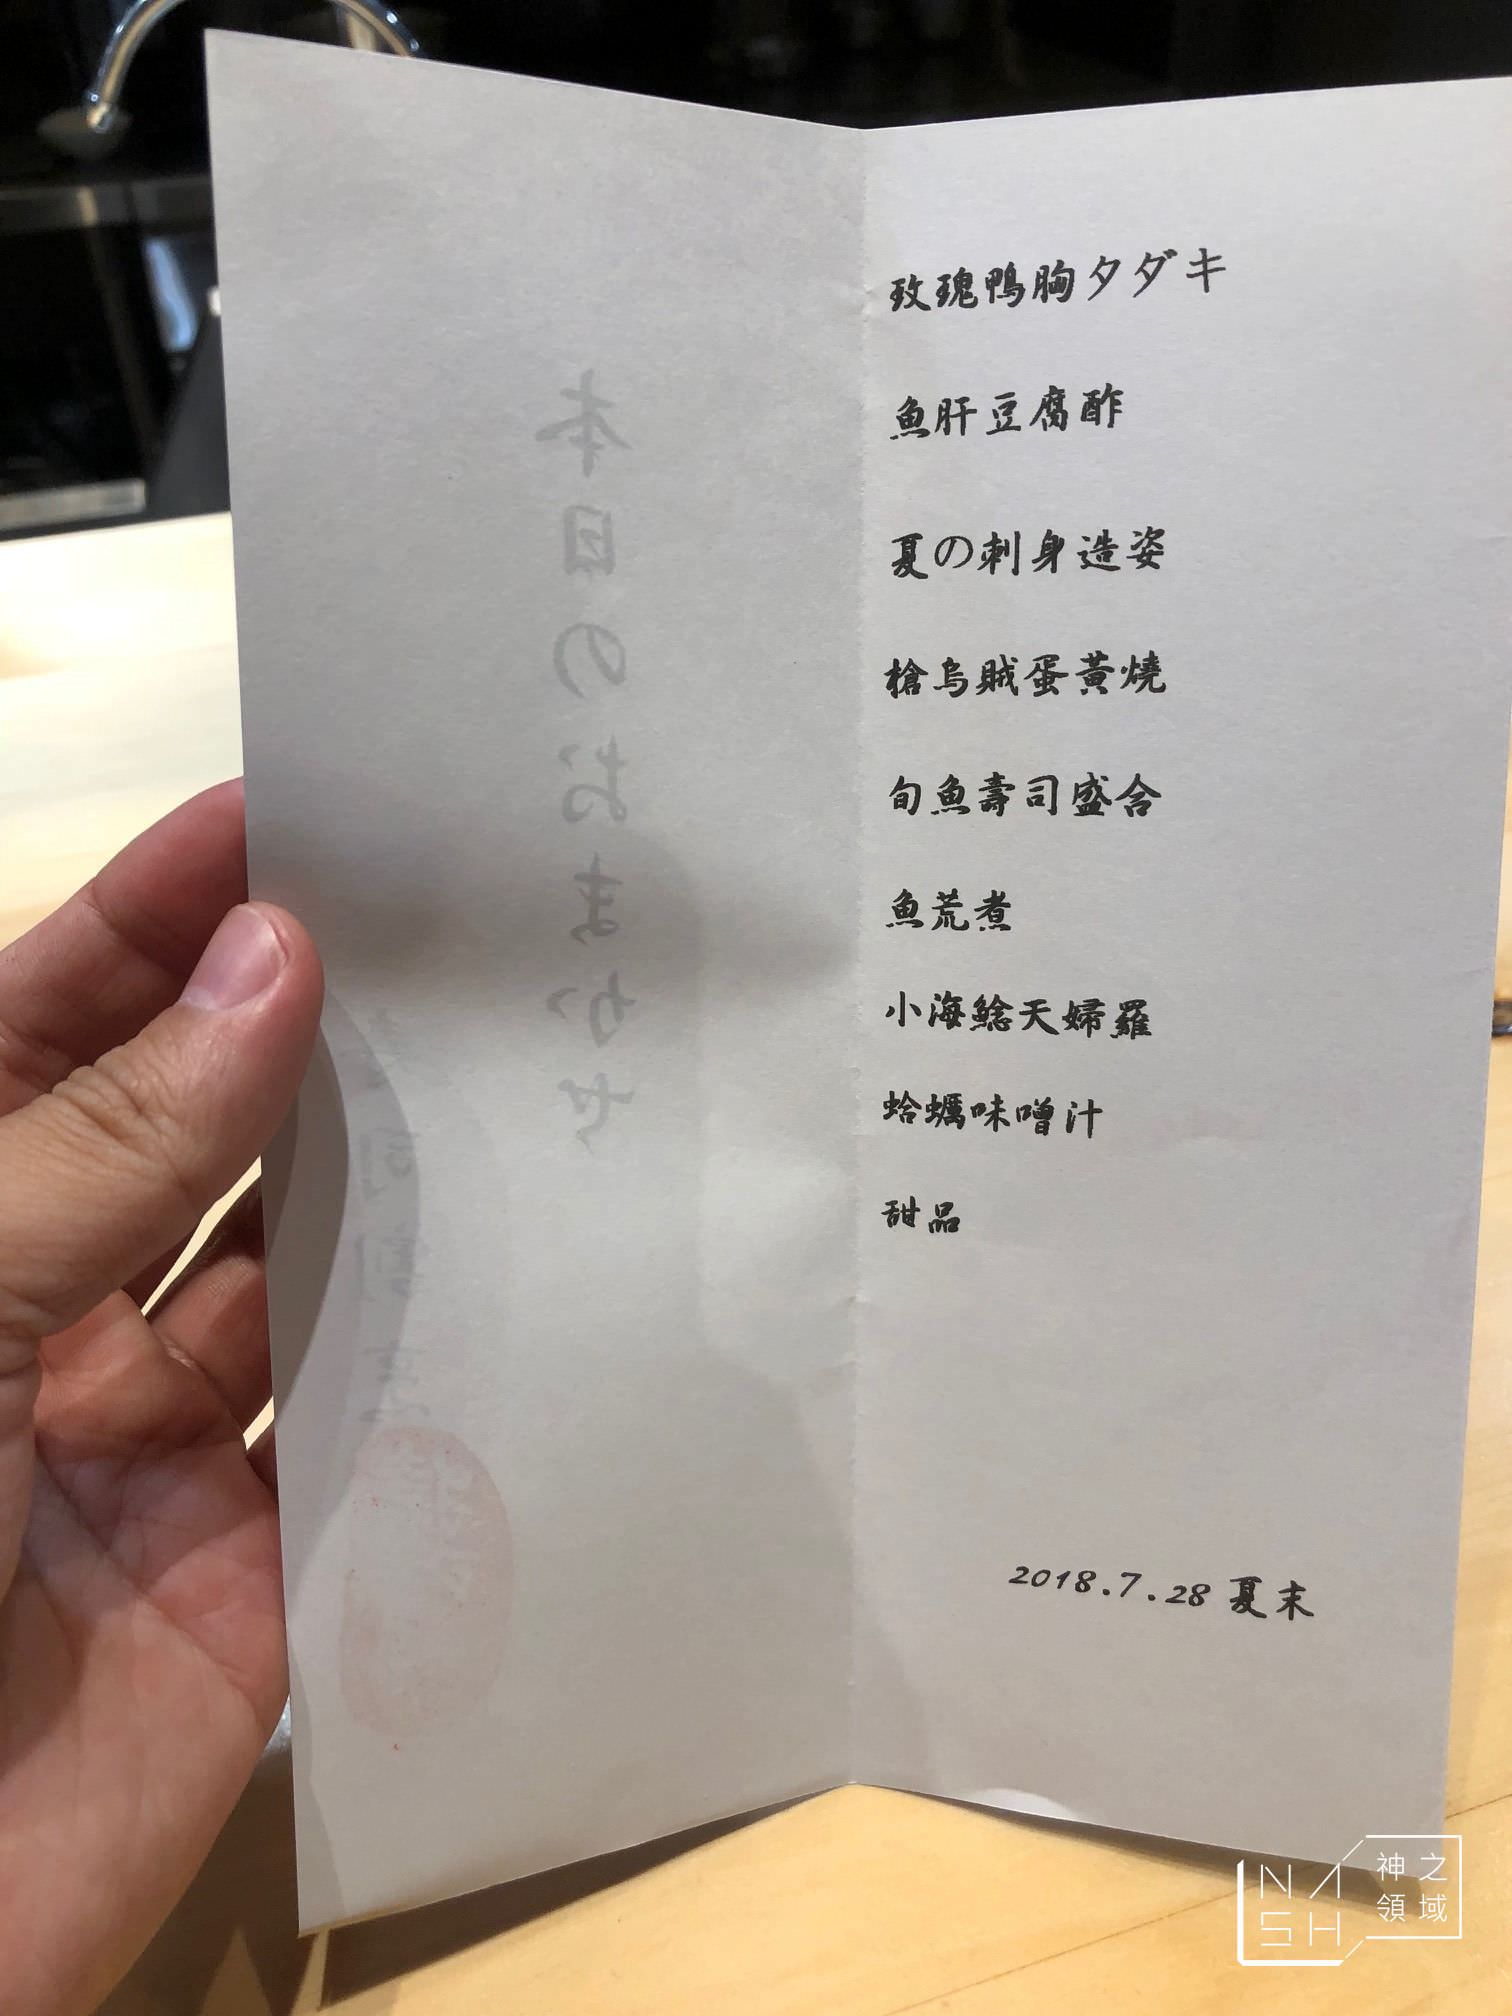 本日のおまかせ
玫瑰鴨胸タダキ
魚肝豆腐酢
夏の刺身造姿
槍烏賊蛋黃燒
旬魚壽司盛合
魚荒煮
小海鯰天婦羅
蛤蠣味噌汁
甜品
2018.7.28 夏末
NASH
神之
領域